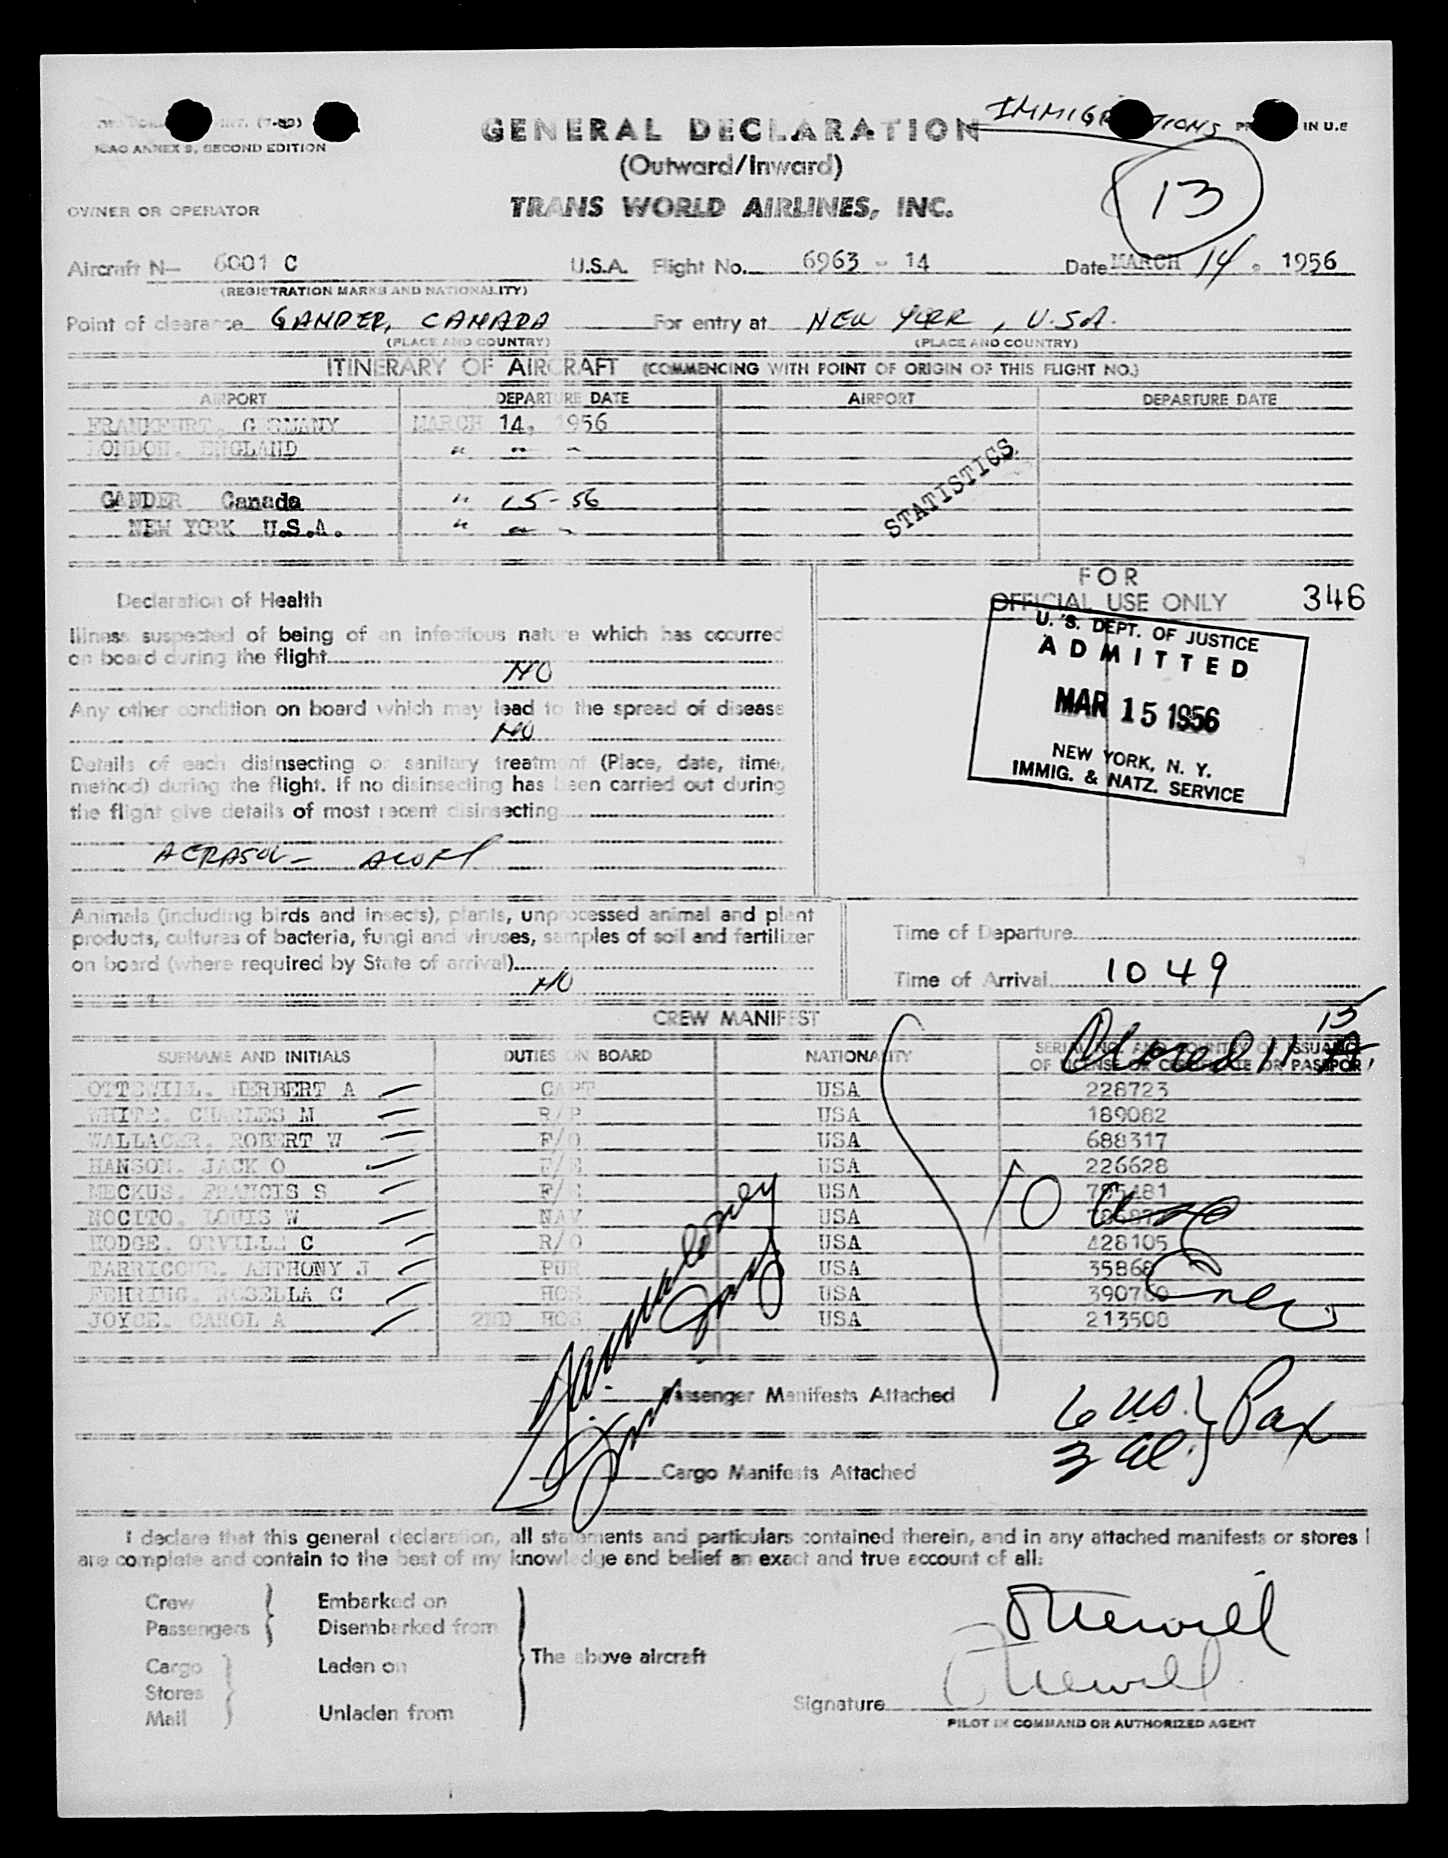 IMMIGRATIONS
GENERAL DECLARATION
PRINTED IN U.S
ICAO ANNEX 9, SECOND EDITION
(Outward/Inward)
13
OWNER OR OPERATOR
TRANS WORLD AIRLINES, INC.
Aircraft N— 6001 C U.S.A. Flight No. 6963 - 14 Date MARCH 14, 1956
(REGISTRATION MARKS AND NATIONALITY)
Point of clearance GANDER, CANADA For entry at NEW YORK, U.S.A.
(PLACE AND COUNTRY) (PLACE AND COUNTRY)
ITINERARY OF AIRCRAFT (COMMENCING WITH POINT OF ORIGIN OF THIS FLIGHT NO.)
AIRPORT DEPARTURE DATE AIRPORT DEPARTURE DATE
FRANKFURT, GERMANY MARCH 14, 1956
LONDON, ENGLAND " " "
STATISTICS
GANDER Canada " 15-56
NEW YORK U.S.A. " " "
FOR
OFFICIAL USE ONLY 346
U. S. DEPT. OF JUSTICE
ADMITTED
MAR 15 1956
NEW YORK, N. Y.
IMMIG. & NATZ. SERVICE
Declaration of Health
Illness suspected of being of an infectious nature which has occurred
on board during the flight
NO
Any other condition on board which may lead to the spread of disease
NO
Details of each disinsecting or sanitary treatment (Place, date, time,
method) during the flight. If no disinsecting has been carried out during
the flight give details of most recent disinsecting
Animals (including birds and insects), plants, unprocessed animal and plant
products, cultures of bacteria, fungi and viruses, samples of soil and fertilizer
on board (where required by State of arrival)
NO
Time of Departure
Time of Arrival 1049
CREW MANIFEST
15
SURNAME AND INITIALS DUTIES ON BOARD NATIONALITY SERIAL NO. AND COUNTRY OF ISSUANCE
OF LICENSE OR CERTIFICATE OR PASSPORT
OTTEWILL, HERBERT A CAPT USA 228723
WHITE, CHARLES M R/P USA 189082
WALLACER, ROBERT W F/O USA 688317
HANSON, JACK O F/E USA 226628
MECKUS, FRANCIS S F/E USA
NOCITO, LOUIS W NAV USA
HODGE, ORVILLE C R/O USA 428105
TARRICONE, ANTHONY J PUR USA 35868
FEHRING, ROSELLA C HOS USA 390760
JOYCE, CAROL A 2ND HOS USA 213508
10
Crew
Passenger Manifests Attached
6 US.
3 al. } Pax
Cargo Manifests Attached
I declare that this general declaration, all statements and particulars contained therein, and in any attached manifests or stores l
are complete and contain to the best of my knowledge and belief an exact and true account of all:
Crew Embarked on
Passengers Disembarked from
The above aircraft
Cargo Laden on
Stores
Mail Unladen from
Ottewill
Ottewill
Signature
PILOT IN COMMAND OR AUTHORIZED AGENT